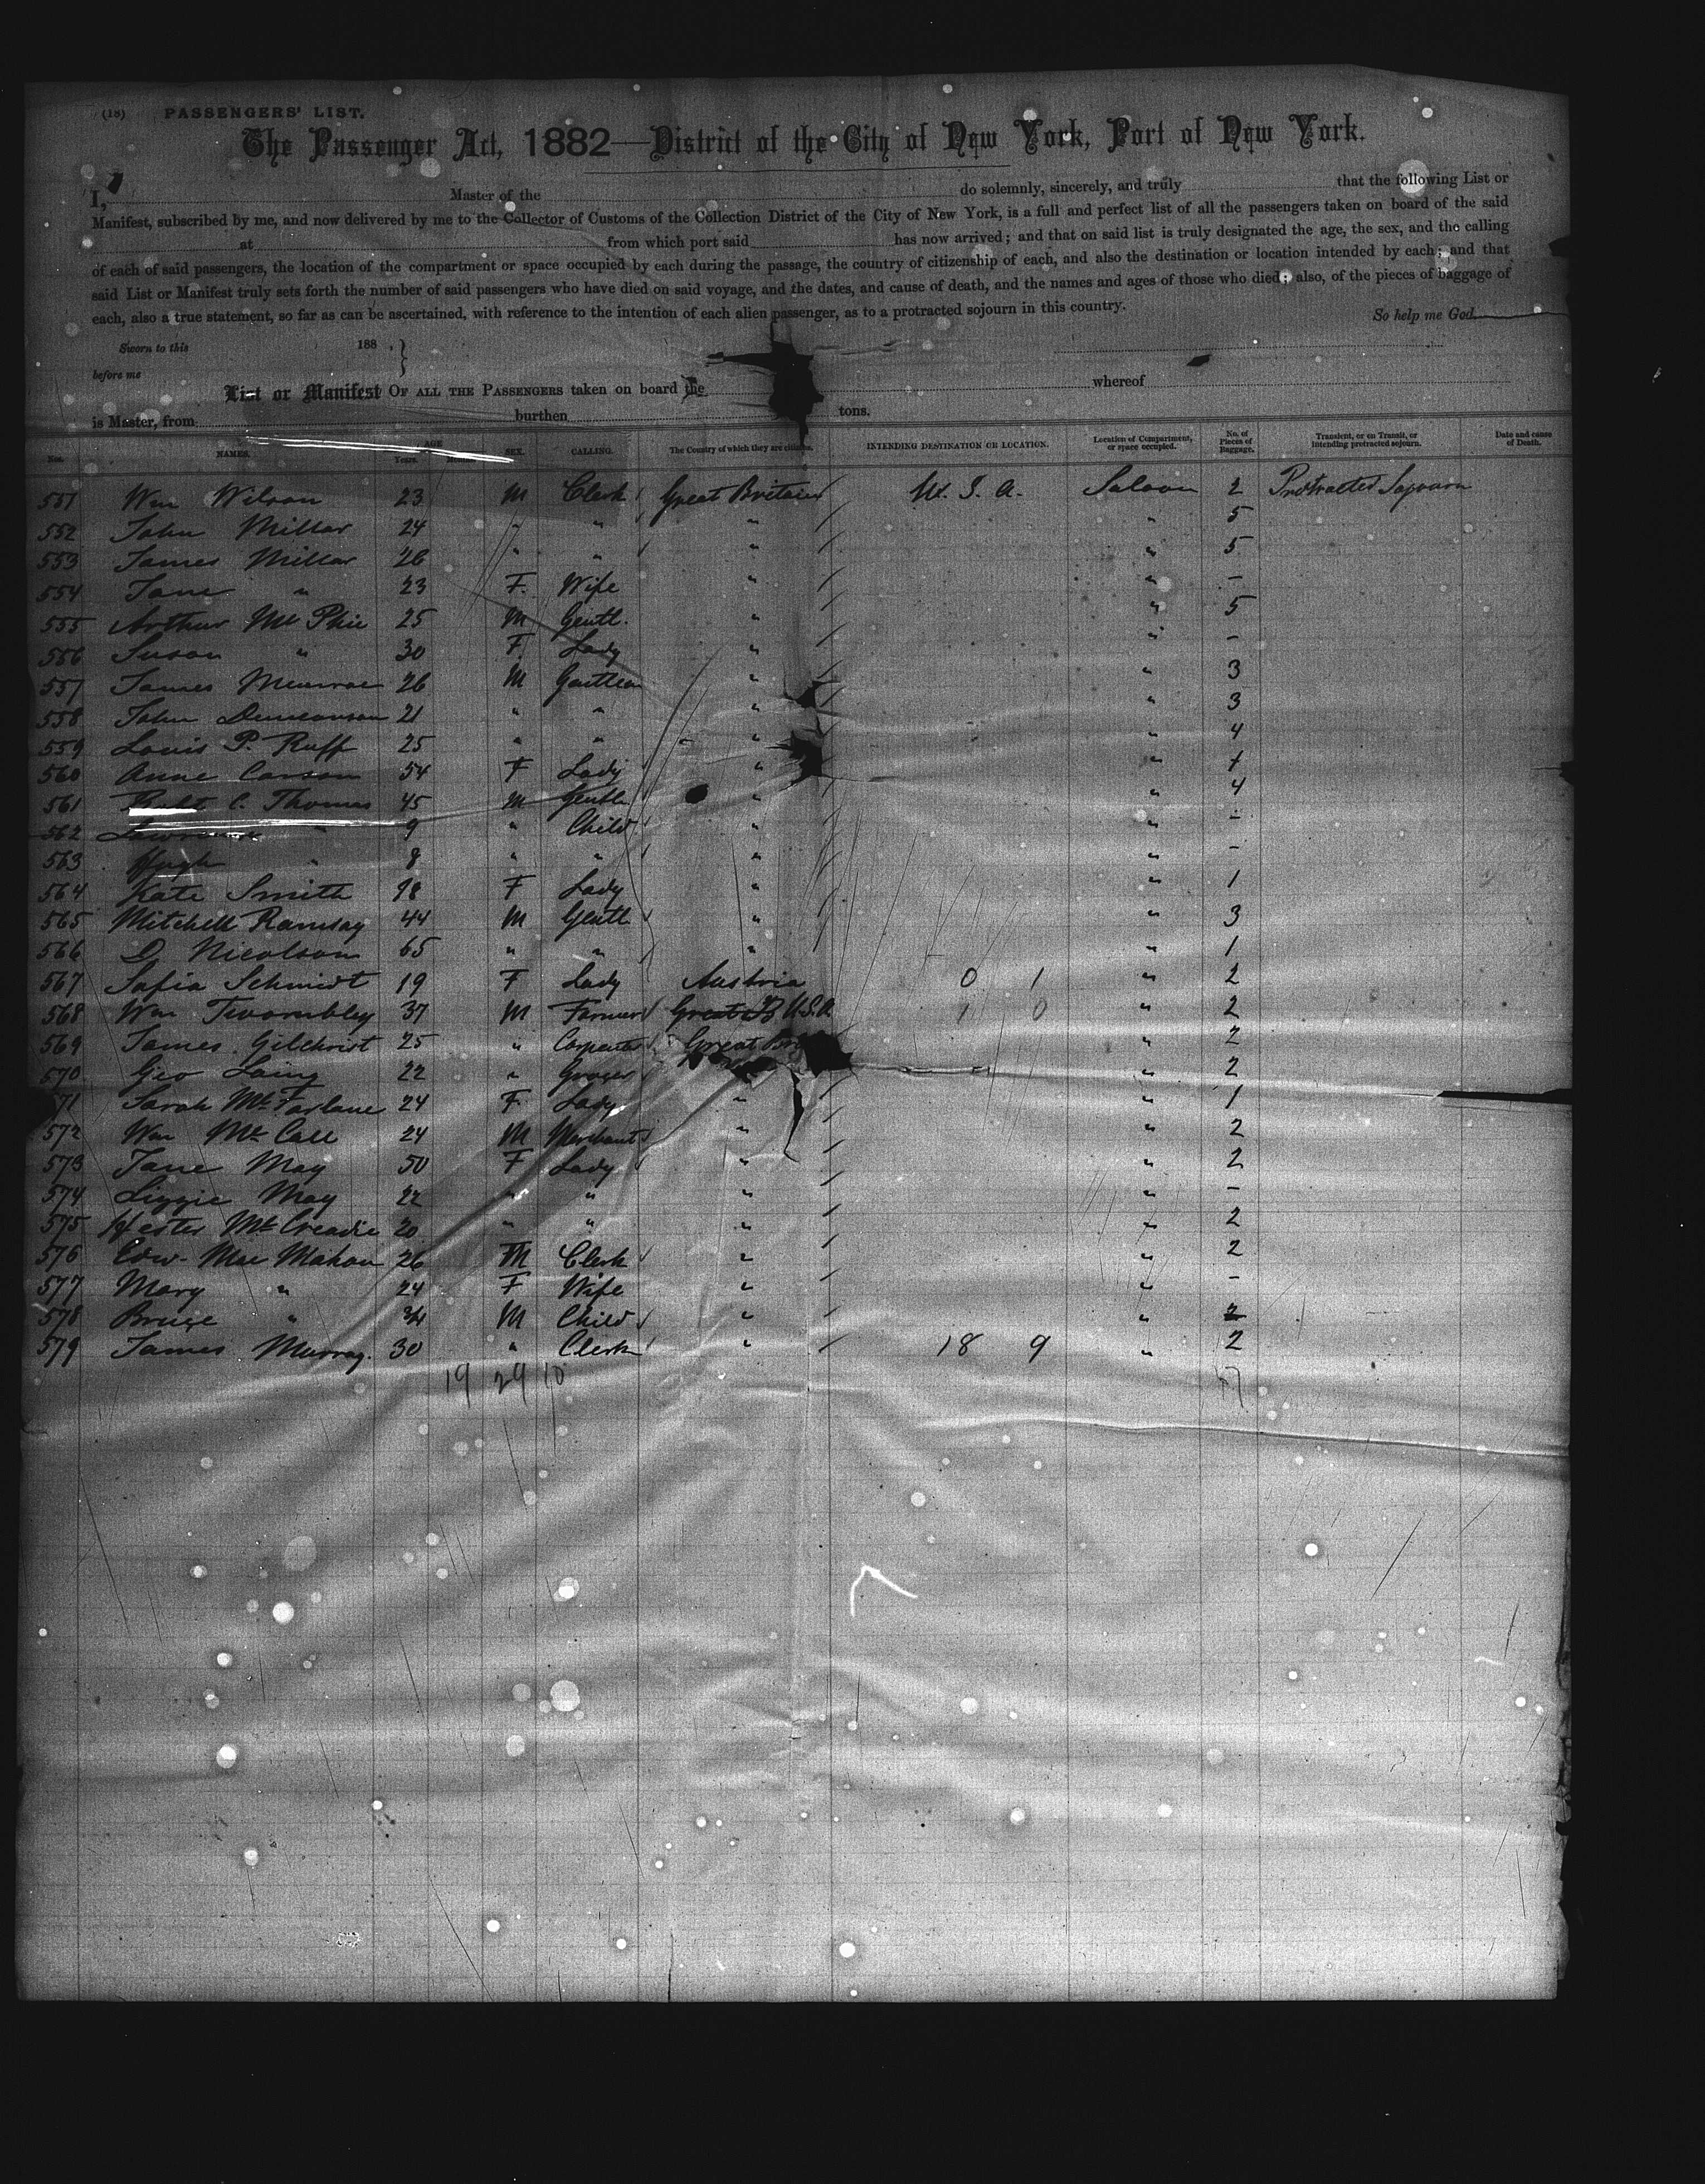 (18) PASSENGERS' LIST.
The Passenger Act, 1882—District of the City of New York, Port of New York.
I, Master of the do solemnly, sincerely, and truly that the following List or
Manifest, subscribed by me, and now delivered by me to the Collector of Customs of the Collection District of the City of New York, is a full and perfect list of all the passengers taken on board of the said
at from which port said has now arrived; and that on said list is truly designated the age, the sex, and the calling
of each of said passengers, the location of the compartment or space occupied by each during the passage, the country of citizenship of each, and also the destination or location intended by each; and that
said List or Manifest truly sets forth the number of said passengers who have died on said voyage, and the dates, and cause of death, and the names and ages of those who died; also, of the pieces of baggage of
each, also a true statement, so far as can be ascertained, with reference to the intention of each alien passenger, as to a protracted sojourn in this country. So help me God.
Sworn to this 188 .
before me
List or Manifest OF ALL THE PASSENGERS taken on board the whereof
is Master, from burthen tons.
Nos. NAMES. AGE Years. Months. SEX. CALLING. The Country of which they are citizens. INTENDING DESTINATION OR LOCATION. Location of Compartment, or space occupied. No. of Pieces of Baggage. Transient, or on Transit, or intending protracted sojourn. Date and cause of Death.
551 Wm Wilson 23 M Clerk Great Britain U. S. A. Saloon 2 Protracted Sojourn
552 John Millar 24 " " " " 5
553 James Millar 26 " " " " 5
554 Jane " 23 F. Wife " " -
555 Arthur Mc Phie 25 M Gentl. " " 5
556 Susan " 30 F. Lady " " -
557 James Munroe 26 M Gentleman " " 3
558 John Duncanson 21 " " " " 3
559 Louis P. Ruff 25 " " " " 4
560 Anne Carson 54 F Lady " " 1
561 Robt C. Thomas 45 M Gentln " " 4
562 Lawrence " 9 " Child " " -
563 Hugh " 8 " " " " -
564 Kate Smith 18 F Lady " " 1
565 Mitchell Ramsay 44 M Gentl " " 3
566 D Nicolson 65 " " " " 1
567 Sofia Schmidt 19 F Lady Austria 0 1 " 2
568 Wm Twombley 37 M Farmer Great B U.S.A. 1 0 " 2
569 James Gilchrist 25 " Carpenter Great Bri " 2
570 Geo Laing 22 " Grocer " 2
571 Sarah Mc Farlane 24 F Lady " " 1
572 Wm Mc Call 24 M Merchant " " 2
573 Jane May 50 F Lady " " 2
574 Lizzie May 22 " " " " -
575 Hester McCreadie 20 " " " " 2
576 Edw. Mac Mahon 26 M Clerk " " 2
577 Mary " 24 F Wife " " -
578 Bruce " 3/4 M Child " " 2
579 James Murray. 30 " Clerk " 18 9 " 2
19 29 10